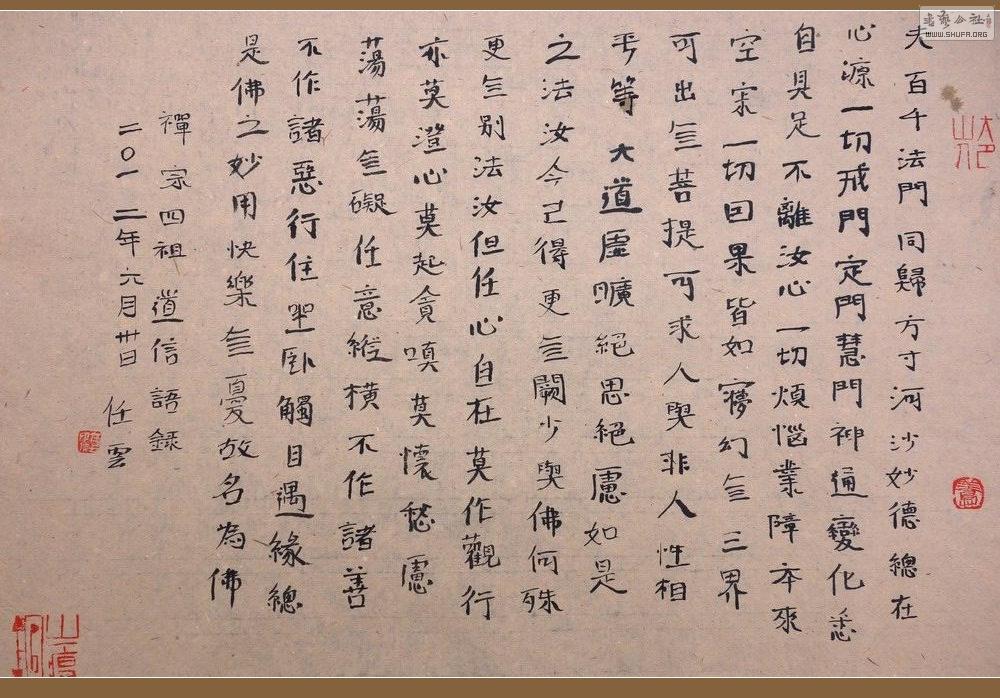 夫百千法門同歸方寸河沙妙德總在
心源一切戒門定門慧門神通變化悉
自具足不離汝心一切煩惱業障本來
空寂一切因果皆如夢幻無三界
可出無菩提可求人與非人性相
平等大道虛曠絕思絕慮如是
之法汝今已得更無闕少與佛何殊
更無別法汝但任心自在莫作觀行
亦莫澄心莫起貪嗔莫懷愁慮
蕩蕩無礙任意縱橫不作諸善
不作諸惡行住坐臥觸目遇緣總
是佛之妙用快樂無憂故名為佛
禪宗四祖道信語録
二〇一二年六月卅日 任雲
书艺公社
WWW.SHUFA.ORG